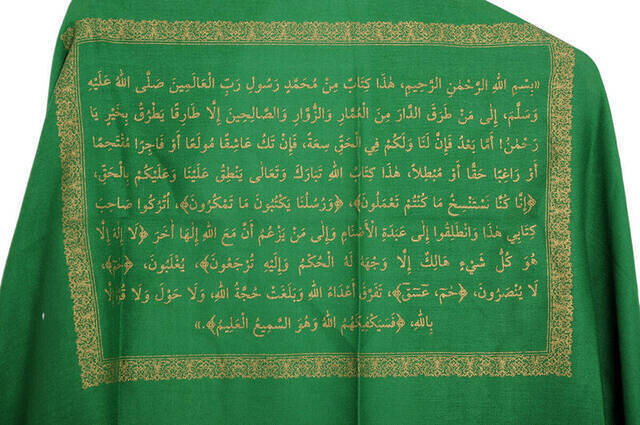 «بِسْمِ اللهِ الرَّحْمٰنِ الرَّحِيمِ، هٰذَا كِتَابٌ مِنْ مُحَمَّدٍ رَسُولِ رَبِّ الْعَالَمِينَ صَلَّى اللهُ عَلَيْهِ
وَسَلَّمَ، إِلَى مَنْ طَرَقَ الدَّارَ مِنَ الْعُمَّارِ وَالزُّوَّارِ وَالصَّالِحِينَ إِلَّا طَارِقًا يَطْرُقُ بِخَيْرٍ يَا
رَحْمٰنُ! أَمَّا بَعْدُ فَإِنَّ لَنَا وَلَكُمْ فِي الْحَقِّ سِعَةً، فَإِنْ تَكُ عَاشِقًا مُولَعًا أَوْ فَاجِرًا مُقْتَحِمًا
أَوْ رَاغِبًا حَقًّا أَوْ مُبْطِلًا، هٰذَا كِتَابُ اللهِ تَبَارَكَ وَتَعَالَى يَنْطِقُ عَلَيْنَا وَعَلَيْكُمْ بِالْحَقِّ،
﴿إِنَّا كُنَّا نَسْتَنْسِخُ مَا كُنْتُمْ تَعْمَلُونَ﴾، ﴿وَرُسُلُنَا يَكْتُبُونَ مَا تَمْكُرُونَ﴾، اُتْرُكُوا صَاحِبَ
كِتَابِي هٰذَا وَانْطَلِقُوا إِلَى عَبَدَةِ الْأَصْنَامِ وَإِلَى مَنْ يَزْعُمُ أَنَّ مَعَ اللهِ إِلٰهًا آخَرَ ﴿لَا إِلٰهَ إِلَّا
هُوَ كُلُّ شَيْءٍ هَالِكٌ إِلَّا وَجْهَهُ لَهُ الْحُكْمُ وَإِلَيْهِ تُرْجَعُونَ﴾، يُغْلَبُونَ، ﴿حٰمٓ﴾،
لَا يُنْصَرُونَ، ﴿حٰمٓ، عٓسٓقٓ﴾، تَفَرَّقَ أَعْدَاءُ اللهِ وَبَلَغَتْ حُجَّةُ اللهِ، وَلَا حَوْلَ وَلَا قُوَّةَ إِلَّا
بِاللهِ، ﴿فَسَيَكْفِيكَهُمُ اللهُ وَهُوَ السَّمِيعُ الْعَلِيمُ﴾.»